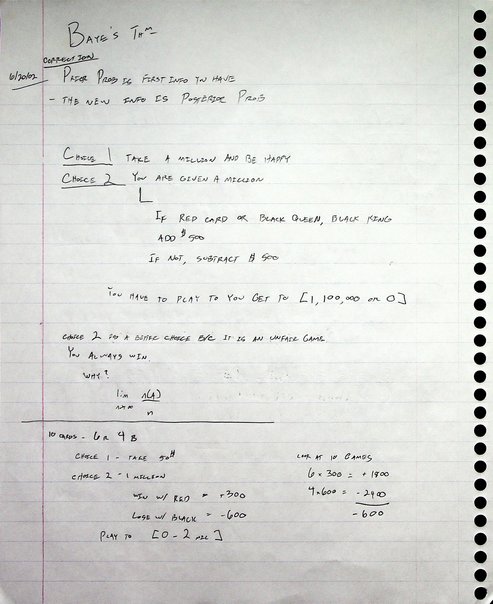 BAYE'S THM
CORRECTION
6/20/02 - PRIOR PROB IS FIRST INFO YOU HAVE
- THE NEW INFO IS POSTERIOR PROB
CHOICE 1 TAKE A MILLION AND BE HAPPY
CHOICE 2 YOU ARE GIVEN A MILLION
IF RED CARD OR BLACK QUEEN, BLACK KING
ADD $500
IF NOT, SUBTRACT $500
YOU HAVE TO PLAY TO YOU GET TO [1,100,000 OR 0]
CHOICE 2 IS A BETTER CHOICE B/C IT IS AN UNFAIR GAME
YOU ALWAYS WIN.
WHY?
lim n(A)
n→∞ n
10 CARDS - 6R 4B
CHOICE 1 - TAKE 50$
CHOICE 2 - 1 MILLION
WIN W/ RED = +300
LOSE W/ BLACK = -600
PLAY TO [0 - 2 MIL]
LOOK AT 10 GAMES
6 × 300 = +1800
4 × 600 = -2400
-600